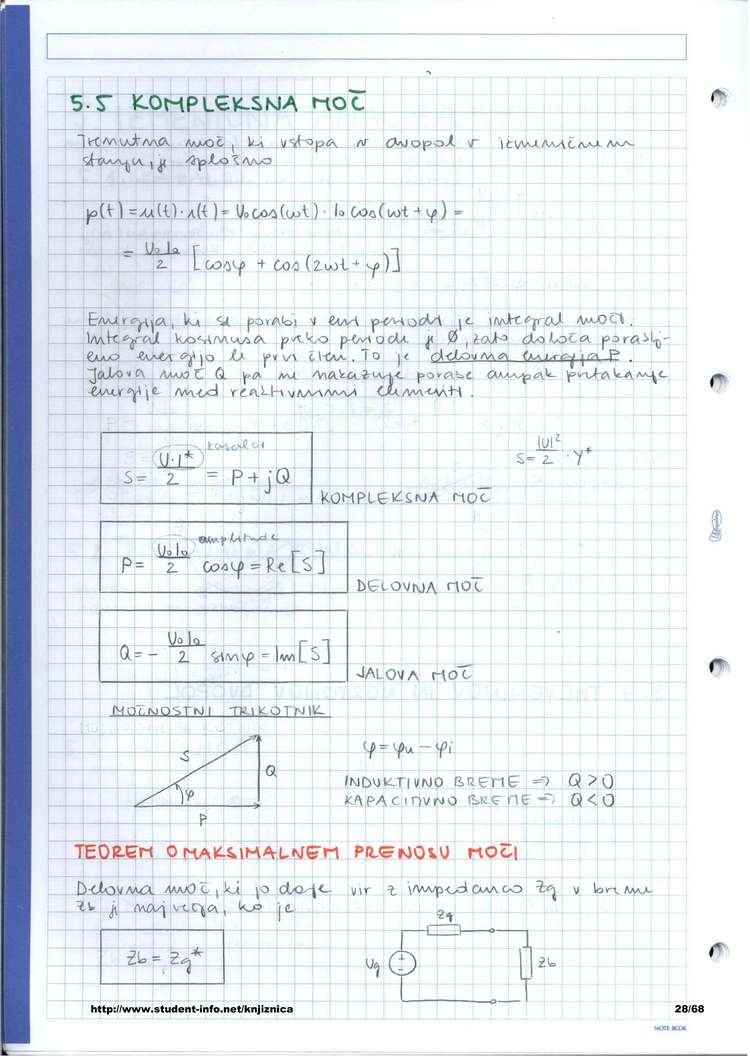 5.5 KOMPLEKSNA MOČ
Trenutna moč, ki vstopa v dvopol v izmeničnem
stanju, je splošno
p(t) = u(t)·i(t) = U₀cos(ωt)· I₀cos(ωt + φ) =
= U₀I₀/2 [cosφ + cos(2ωt + φ)]
Energija, ki se porabi v eni periodi je integral moči.
Integral kosinusa preko periode je Ø, zato določa porablj-
eno energijo le prvi člen. To je delovna energija P.
Jalova moč Q pa ne nakazuje porabe ampak pretakanje
energije med reaktivnimi elementi.
kazalci
S = U·I*/2 = P + jQ
S = |U|²/2 · Y*
KOMPLEKSNA MOČ
amplitude
P = U₀I₀/2 cosφ = Re[S]
DELOVNA MOČ
Q = - U₀I₀/2 sinφ = Im[S]
JALOVA MOČ
MOČNOSTNI TRIKOTNIK
S
Q
φ
P
φ = φu - φi
INDUKTIVNO BREME => Q > 0
KAPACITIVNO BREME => Q < 0
TEOREM O MAKSIMALNEM PRENOSU MOČI
Delovna moč, ki jo daje vir z impedanco Zg v breme
Zb je največja, ko je
Zb = Zg*
Zg
Ug
Zb
http://www.student-info.net/knjiznica
28/68
NOTE BOOK